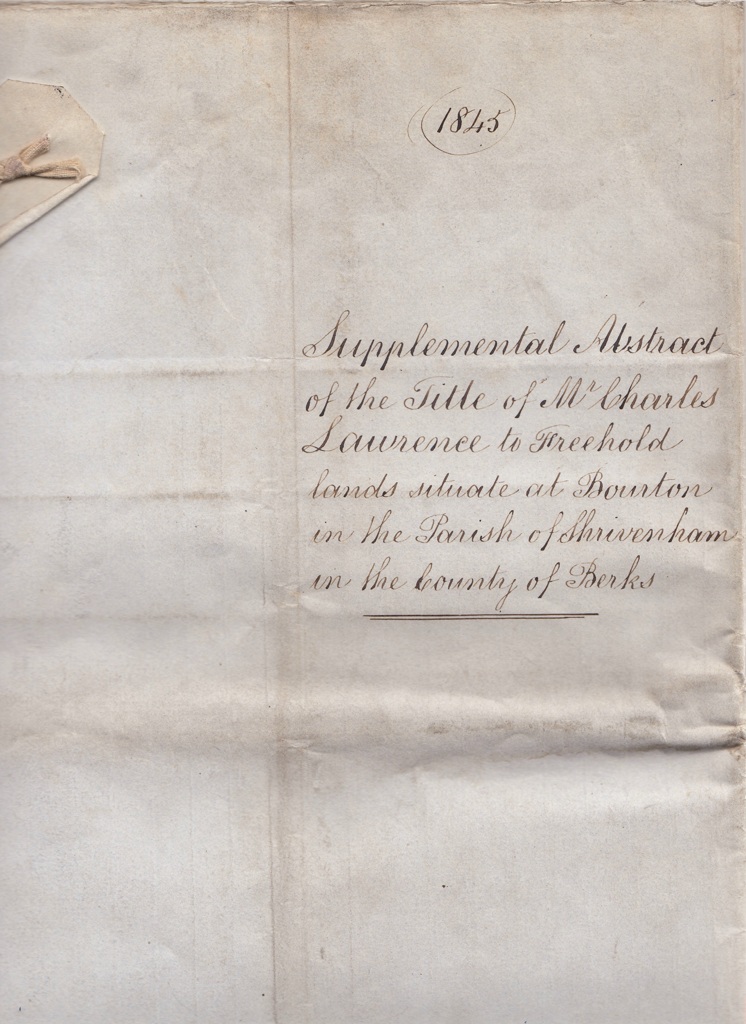 1845
Supplemental Abstract
of the Title of Mr Charles
Lawrence to Freehold
lands situate at Bourton
in the Parish of Shrivenham
in the County of Berks